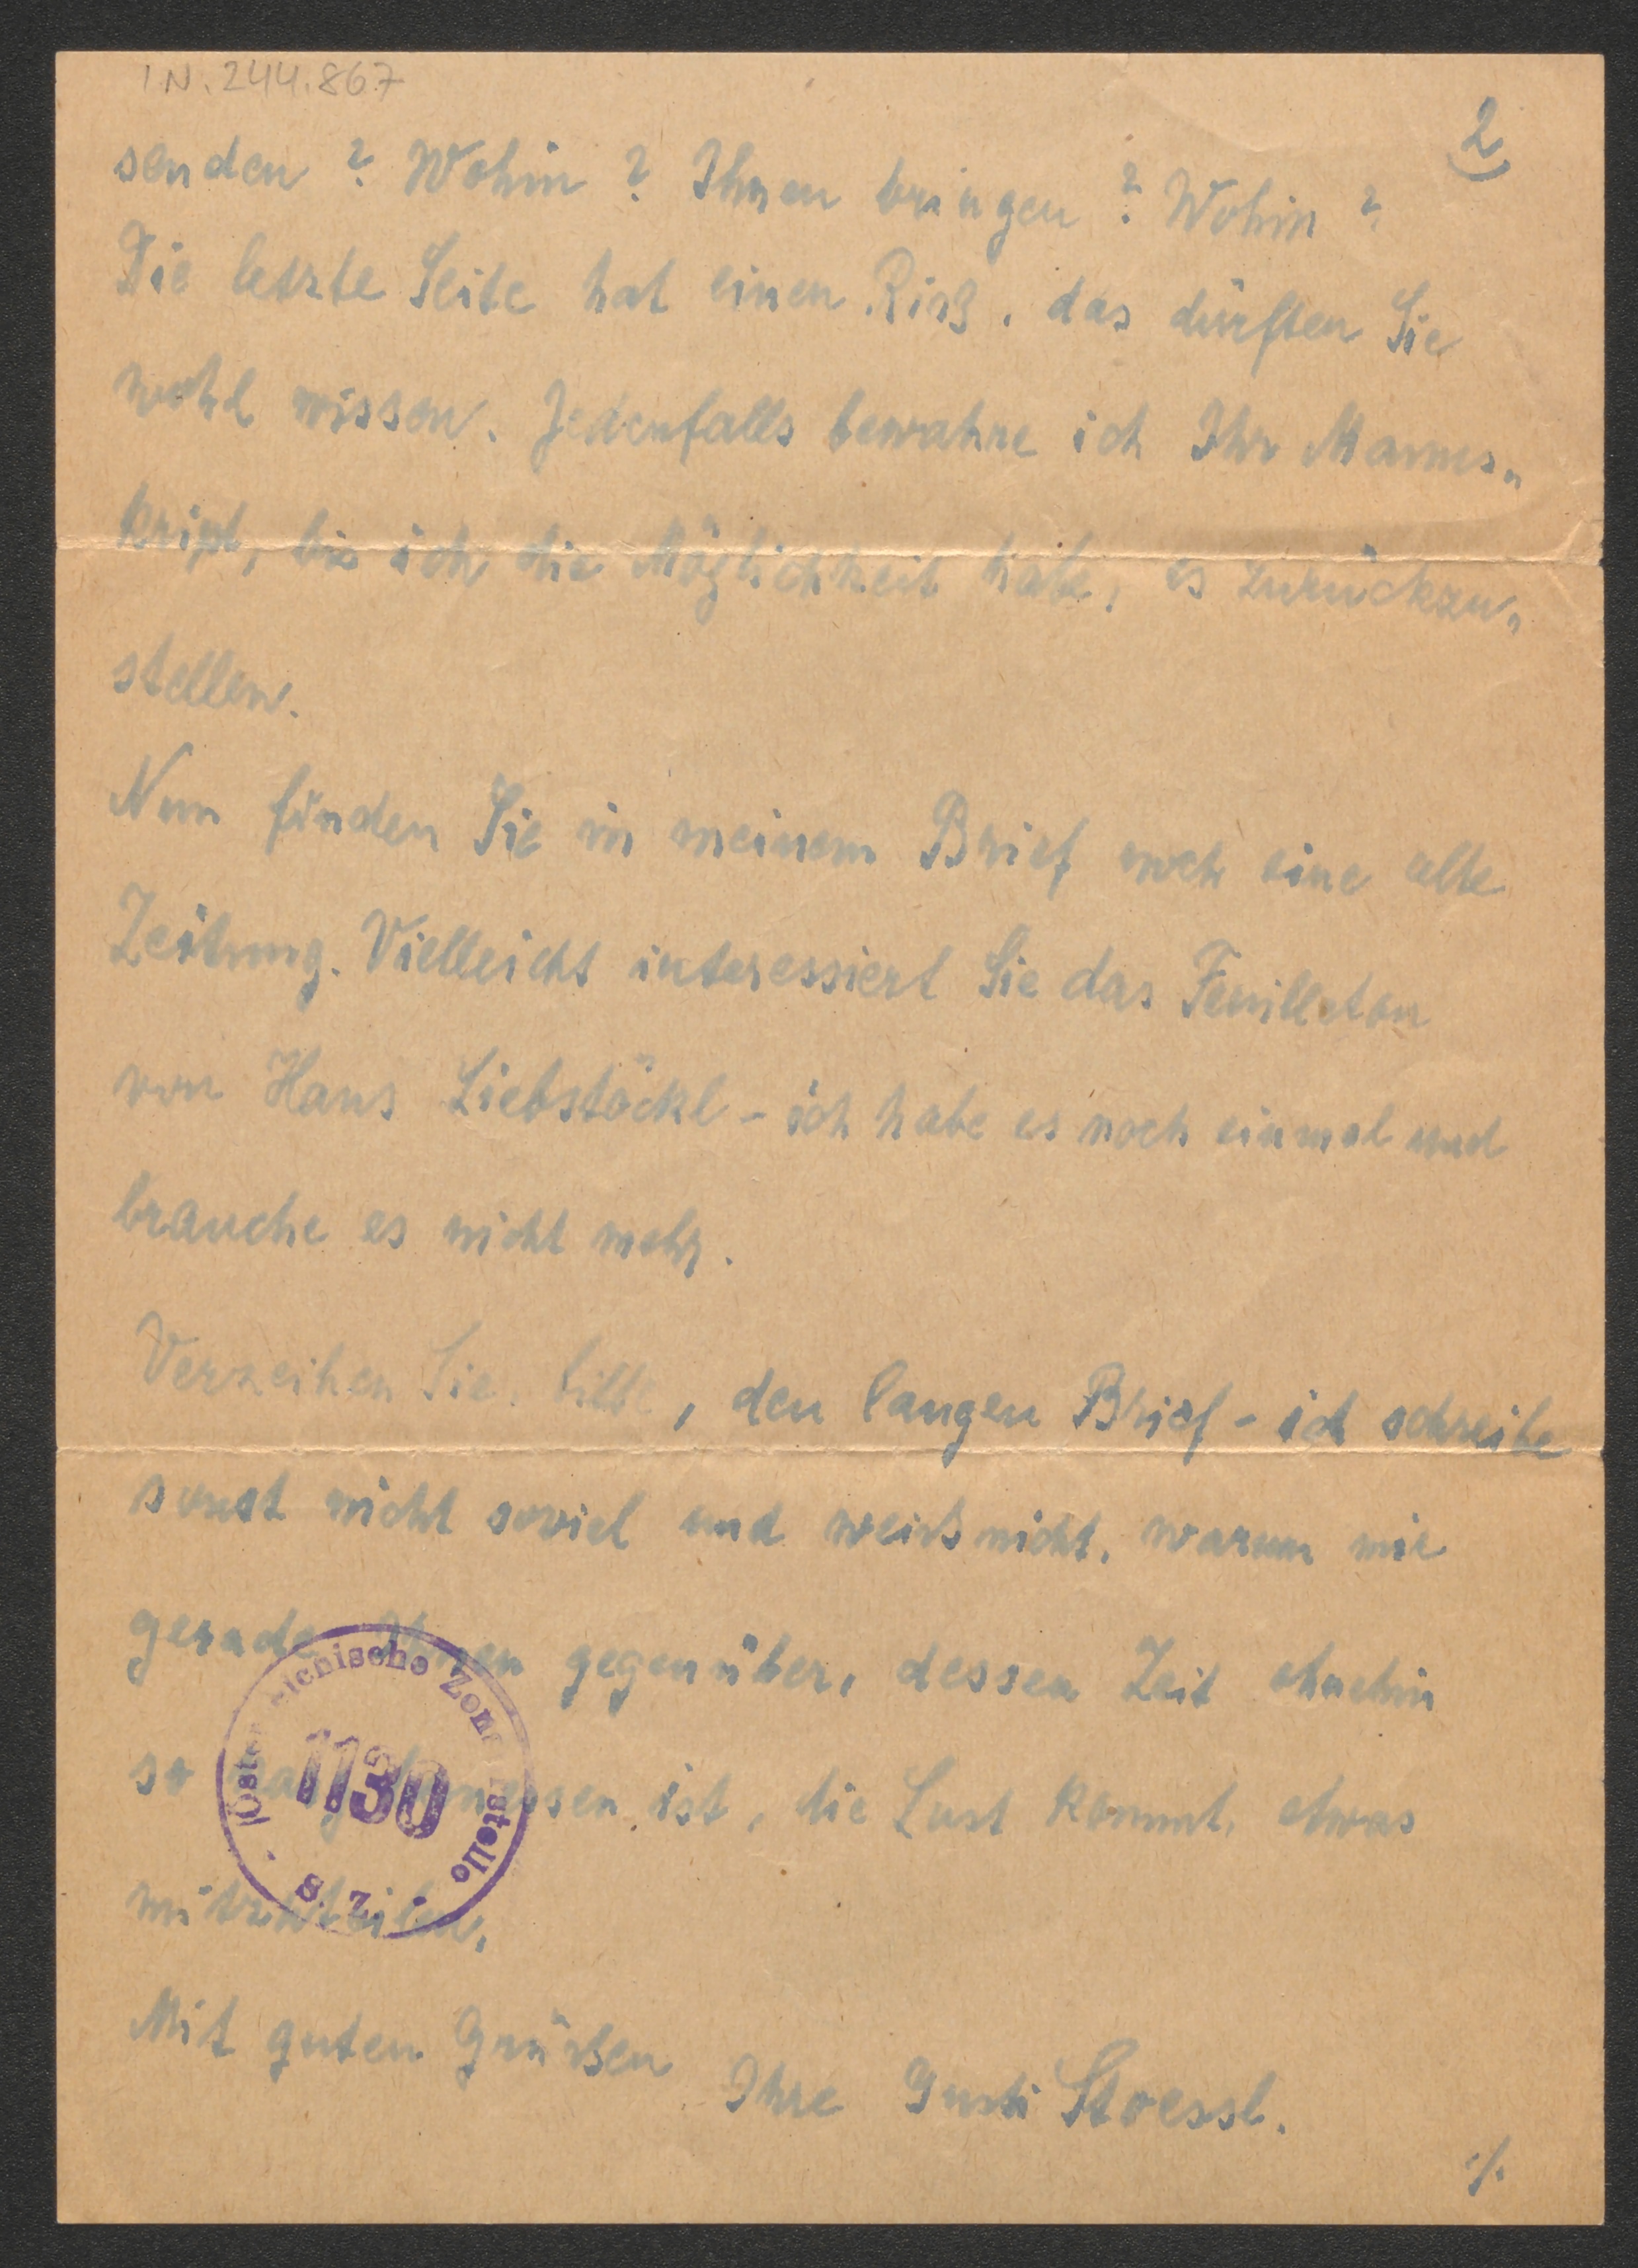 IN. 244.867
2
senden? Wohin? Ihnen bringen? Wohin?
Die letzte Seite hat einen Riß, das dürften Sie
wohl wissen. Jedenfalls bewahre ich Ihr Manus„
kript, bis ich die Möglichkeit habe, es zurückzu„
stellen.
Nun fänden Sie in meinem Brief noch eine alte
Zeitung. Vielleicht interessiert Sie das Feuilleton
von Hans Liebstöckl - ich habe es noch einmal und
brauche es nicht mehr.
Verzeihen Sie, bitte, den langen Brief - ich schreibe
sonst nicht soviel und weiß nicht, warum mir
gerade Ihnen gegenüber, dessen Zeit ohnehin
so ist, die Lust kommt, etwas
mitzuteilen.
Mit guten Grüßen
Ihre Gusti Stoessl.
./.
1130